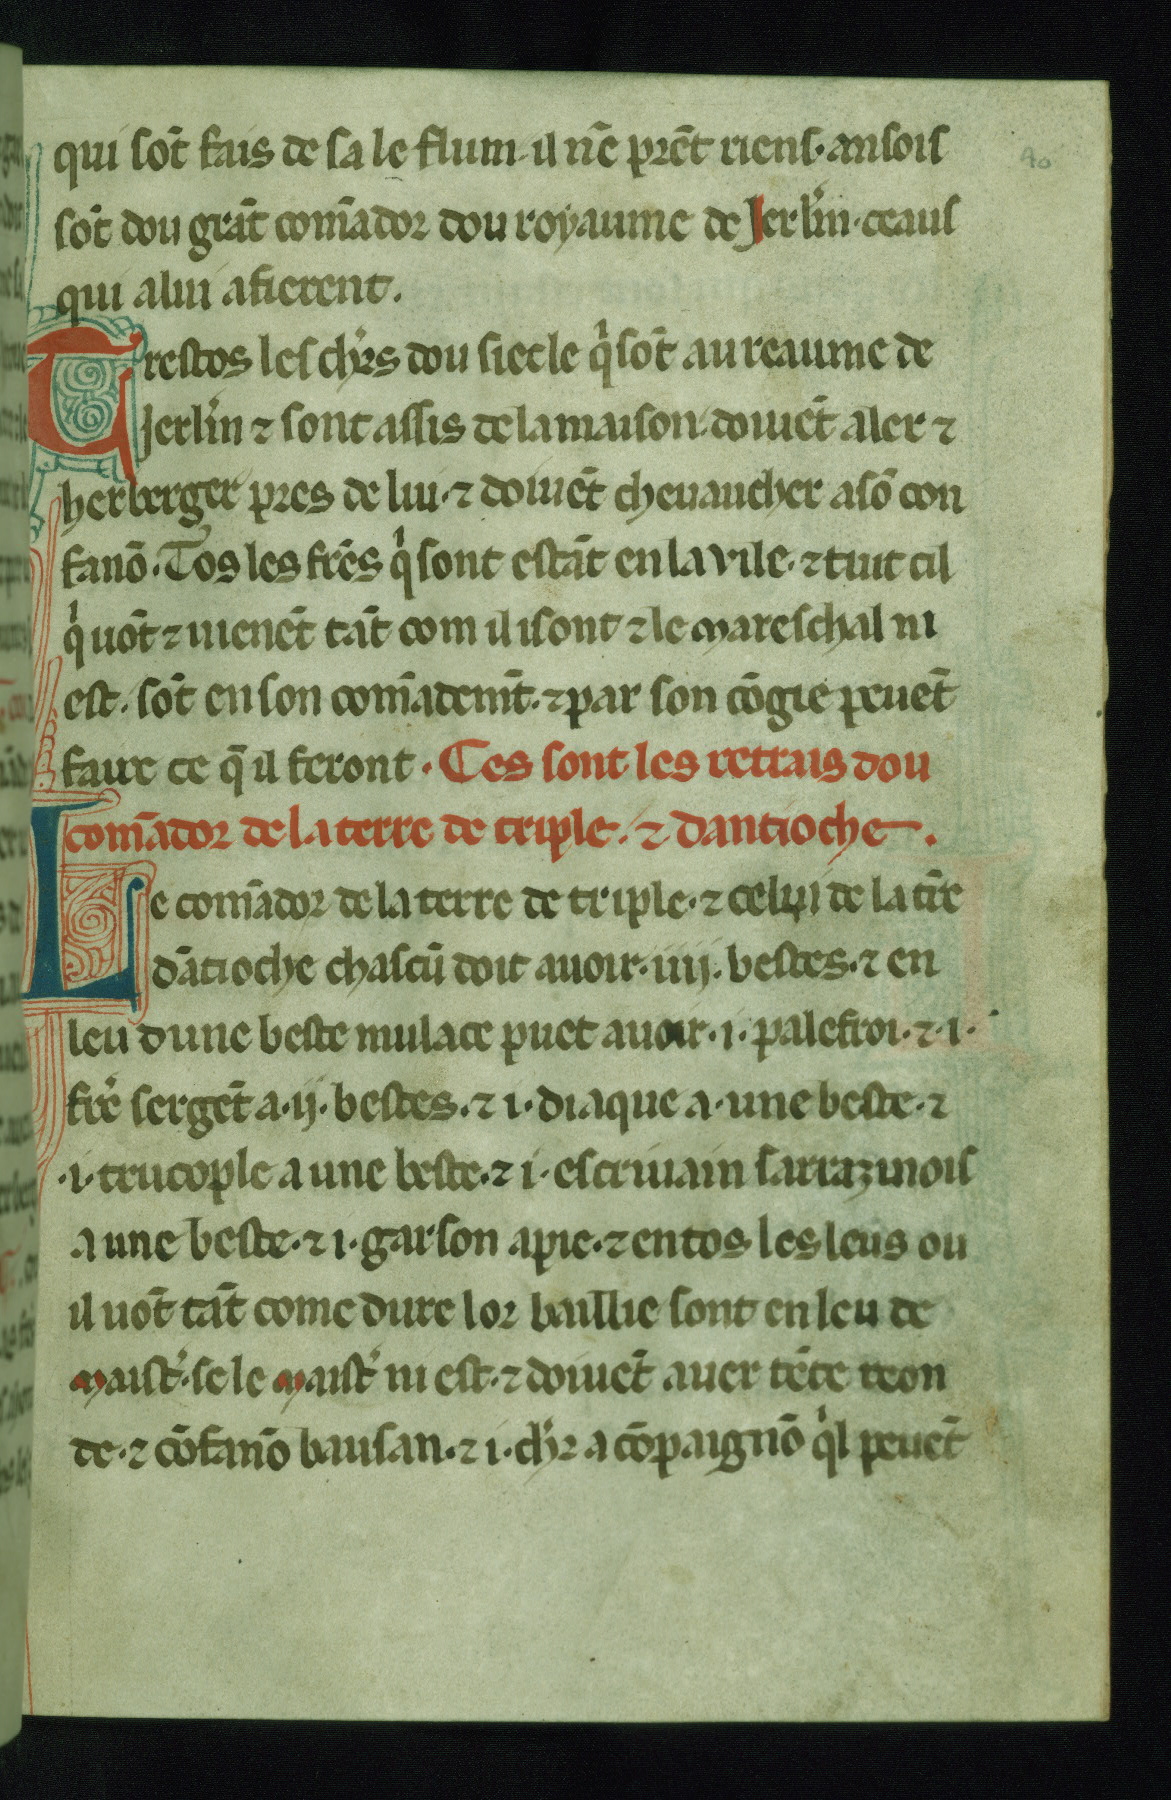 40
qui sōt fais de sa le flum. il nē prēt riens. ansois
sōt dou grāt com̄ador dou royaume de Jerl̄m. ceaus
qui a lui afierent.
Trestos les chr̄s dou siecle qͥ sōt au reaume de
Jerl̄m ⁊ sont assis de la maison. doiuēt aler ⁊
herberger pres de lui. ⁊ doiuēt cheuaucher a sō con
fanō. Tos les fr̄es qͥ sont estāt en la vile. ⁊ tuit cil
qͥ uōt ⁊ uienēt tāt com il i sont ⁊ le mareschal ni
est. sōt en son com̄ademt̄. ⁊ par son cōgie peuēt
faire ce q̄ il feront. Ces sont les retrais dou
com̄ador de la terre de triple. ⁊ dantioche.
Le com̄ador de la terre de triple. ⁊ celui de la tr̄e
dātioche chascū doit auoir. iiij. bestes. ⁊ en
leu dune beste mulace puet auoir. i. palefroi. ⁊. i.
fr̄e sergēt a. ij. bestes. ⁊ i. diaque a. une beste. ⁊
. i. trucople a une beste. ⁊ i. escriuain sarrazinois
a une beste. ⁊ i. garson a pie. ⁊ en tos les leus ou
il uōt tāt come dure lor baillie sont en leu de
maist̄. se le maist̄ ni est. ⁊ doiuēt auer tēte reon
de. ⁊ cōfanō bausan. ⁊ i. chr̄ a cōpaignō qͥl peuēt